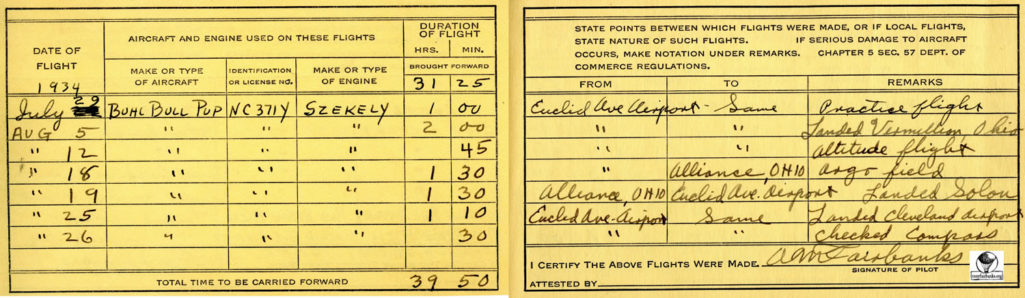 DATE OF FLIGHT
1934
AIRCRAFT AND ENGINE USED ON THESE FLIGHTS
DURATION OF FLIGHT
MAKE OR TYPE OF AIRCRAFT
IDENTIFICATION OR LICENSE NO.
MAKE OR TYPE OF ENGINE
HRS. MIN.
BROUGHT FORWARD
31 25
July 29 BUHL BULL PUP NC371Y SZEKELY 1 00
AUG 5 " " " 2 00
" 12 " " " 45
" 18 " " " 1 30
" 19 " " " 1 30
" 25 " " " 1 10
" 26 " " " 30
TOTAL TIME TO BE CARRIED FORWARD 39 50
STATE POINTS BETWEEN WHICH FLIGHTS WERE MADE, OR IF LOCAL FLIGHTS,
STATE NATURE OF SUCH FLIGHTS. IF SERIOUS DAMAGE TO AIRCRAFT
OCCURS, MAKE NOTATION UNDER REMARKS. CHAPTER 5 SEC. 57 DEPT. OF
COMMERCE REGULATIONS.
FROM TO REMARKS
Euclid Ave Airport - Same Practice flight
" " Landed Vermillion, Ohio
" " Altitude flight
" Alliance, OHIO Argo field
Alliance, OHIO Euclid Ave. Airport Landed Solon
Euclid Ave-Airport Same Landed Cleveland Airport
" " Checked Compass
I CERTIFY THE ABOVE FLIGHTS WERE MADE. A M Fairbanks
SIGNATURE OF PILOT
ATTESTED BY